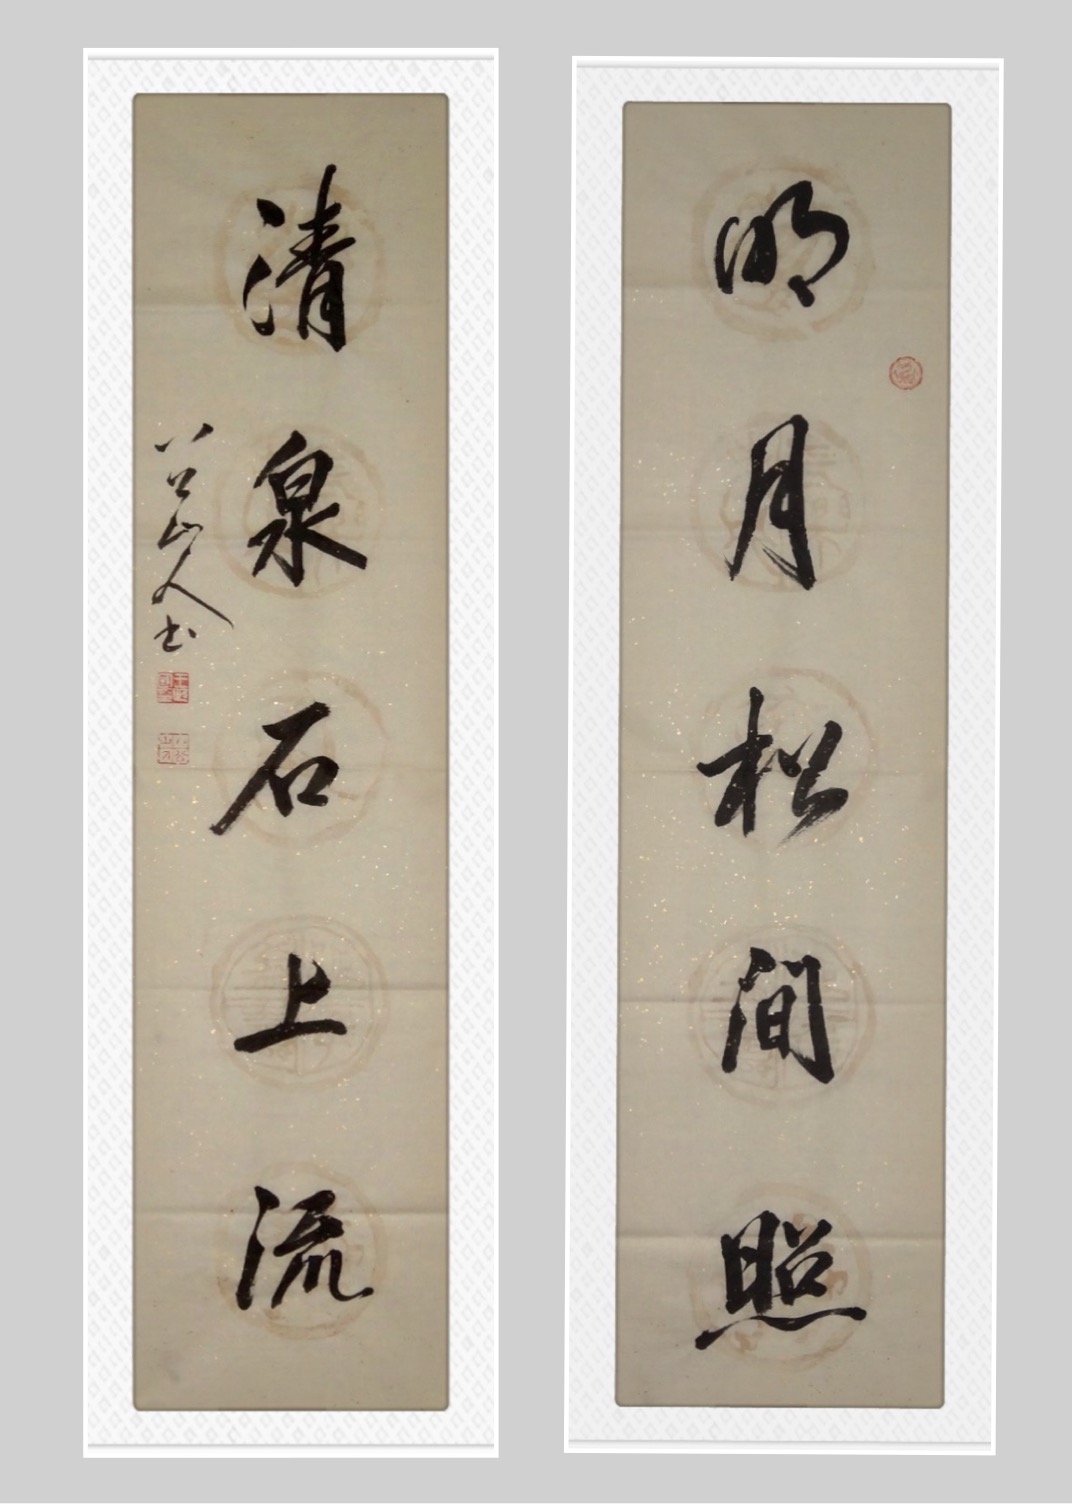 明月松间照
清泉石上流
公山人书